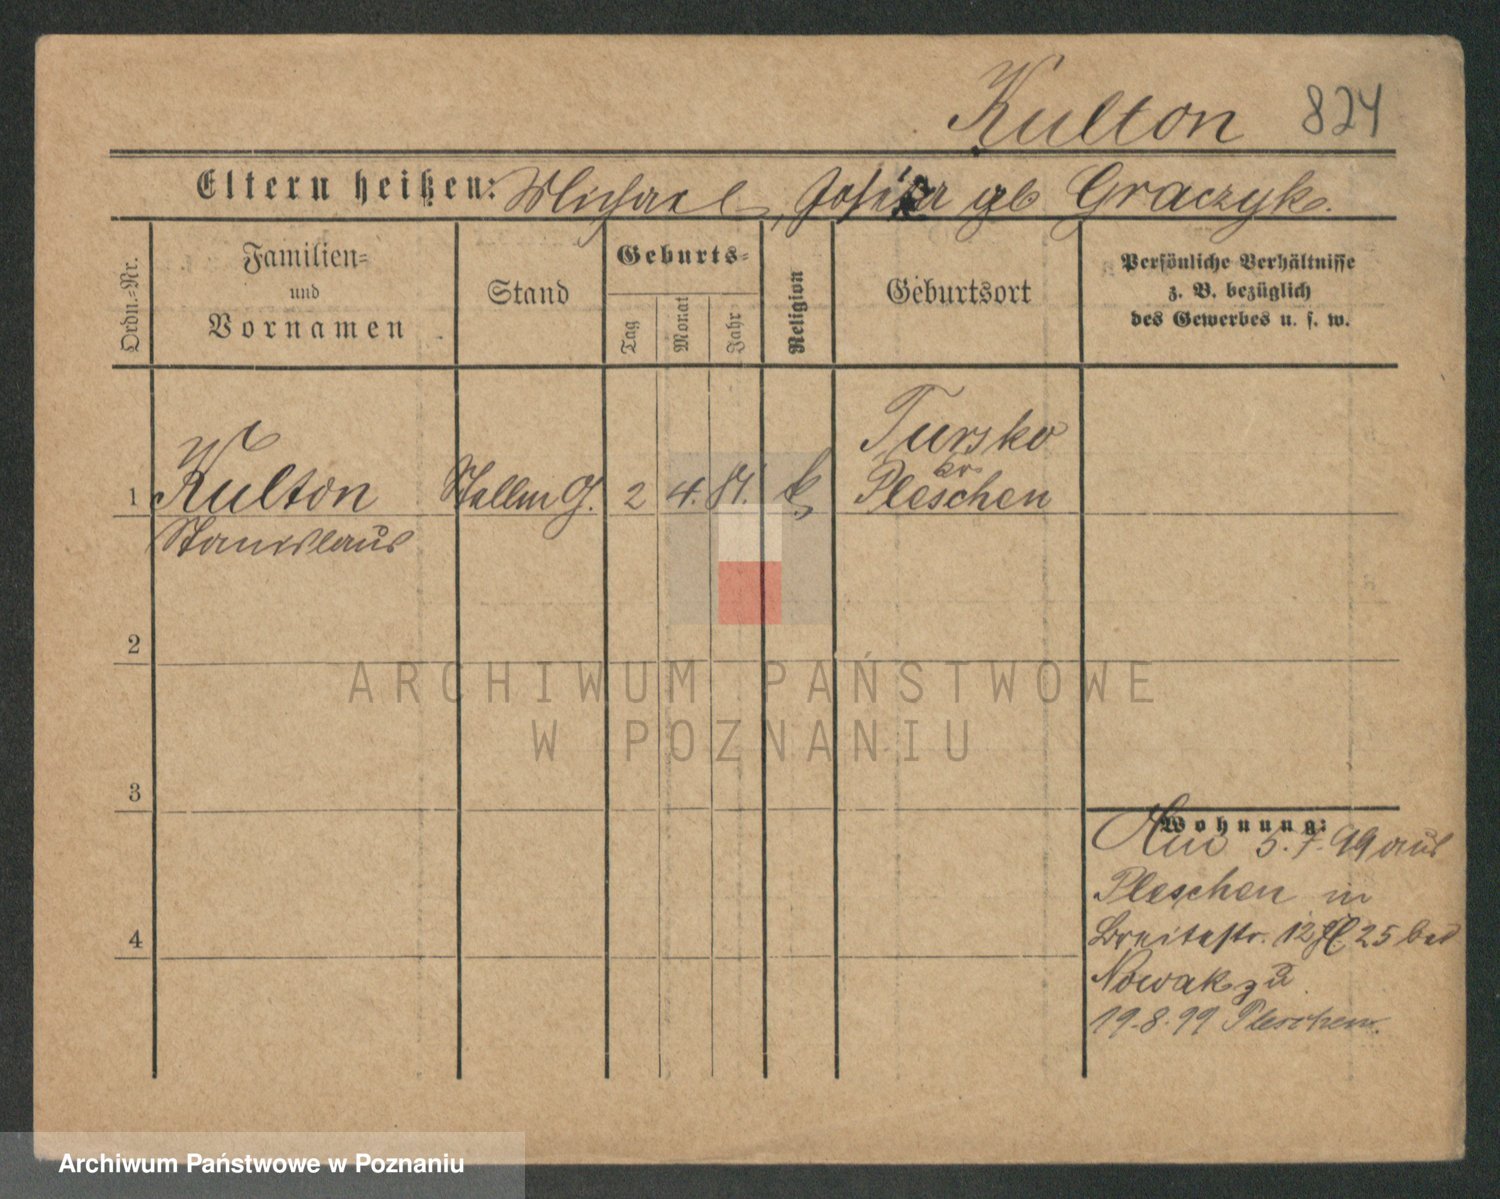 Kulton 824
Eltern heißen: Michael, Josefa gb Graczyk.
Ordn.-Nr.
Familien-
und
Vornamen
Stand
Geburts-
Tag
Monat
Jahr
Religion
Geburtsort
Persönliche Verhältnisse
z. B. bezüglich
des Gewerbes u. s. w.
1 Kulton
Stanislaus
Stellm G. 2 4. 81. k
Tursko
kr.
Pleschen
2
3
4
Wohnung:
5.7.99 aus
Pleschen in
Breitestr. 12 25 bei
Nowak zu
19.8.99 Pleschen.
ARCHIWUM PAŃSTWOWE
W POZNANIU
Archiwum Państwowe w Poznaniu